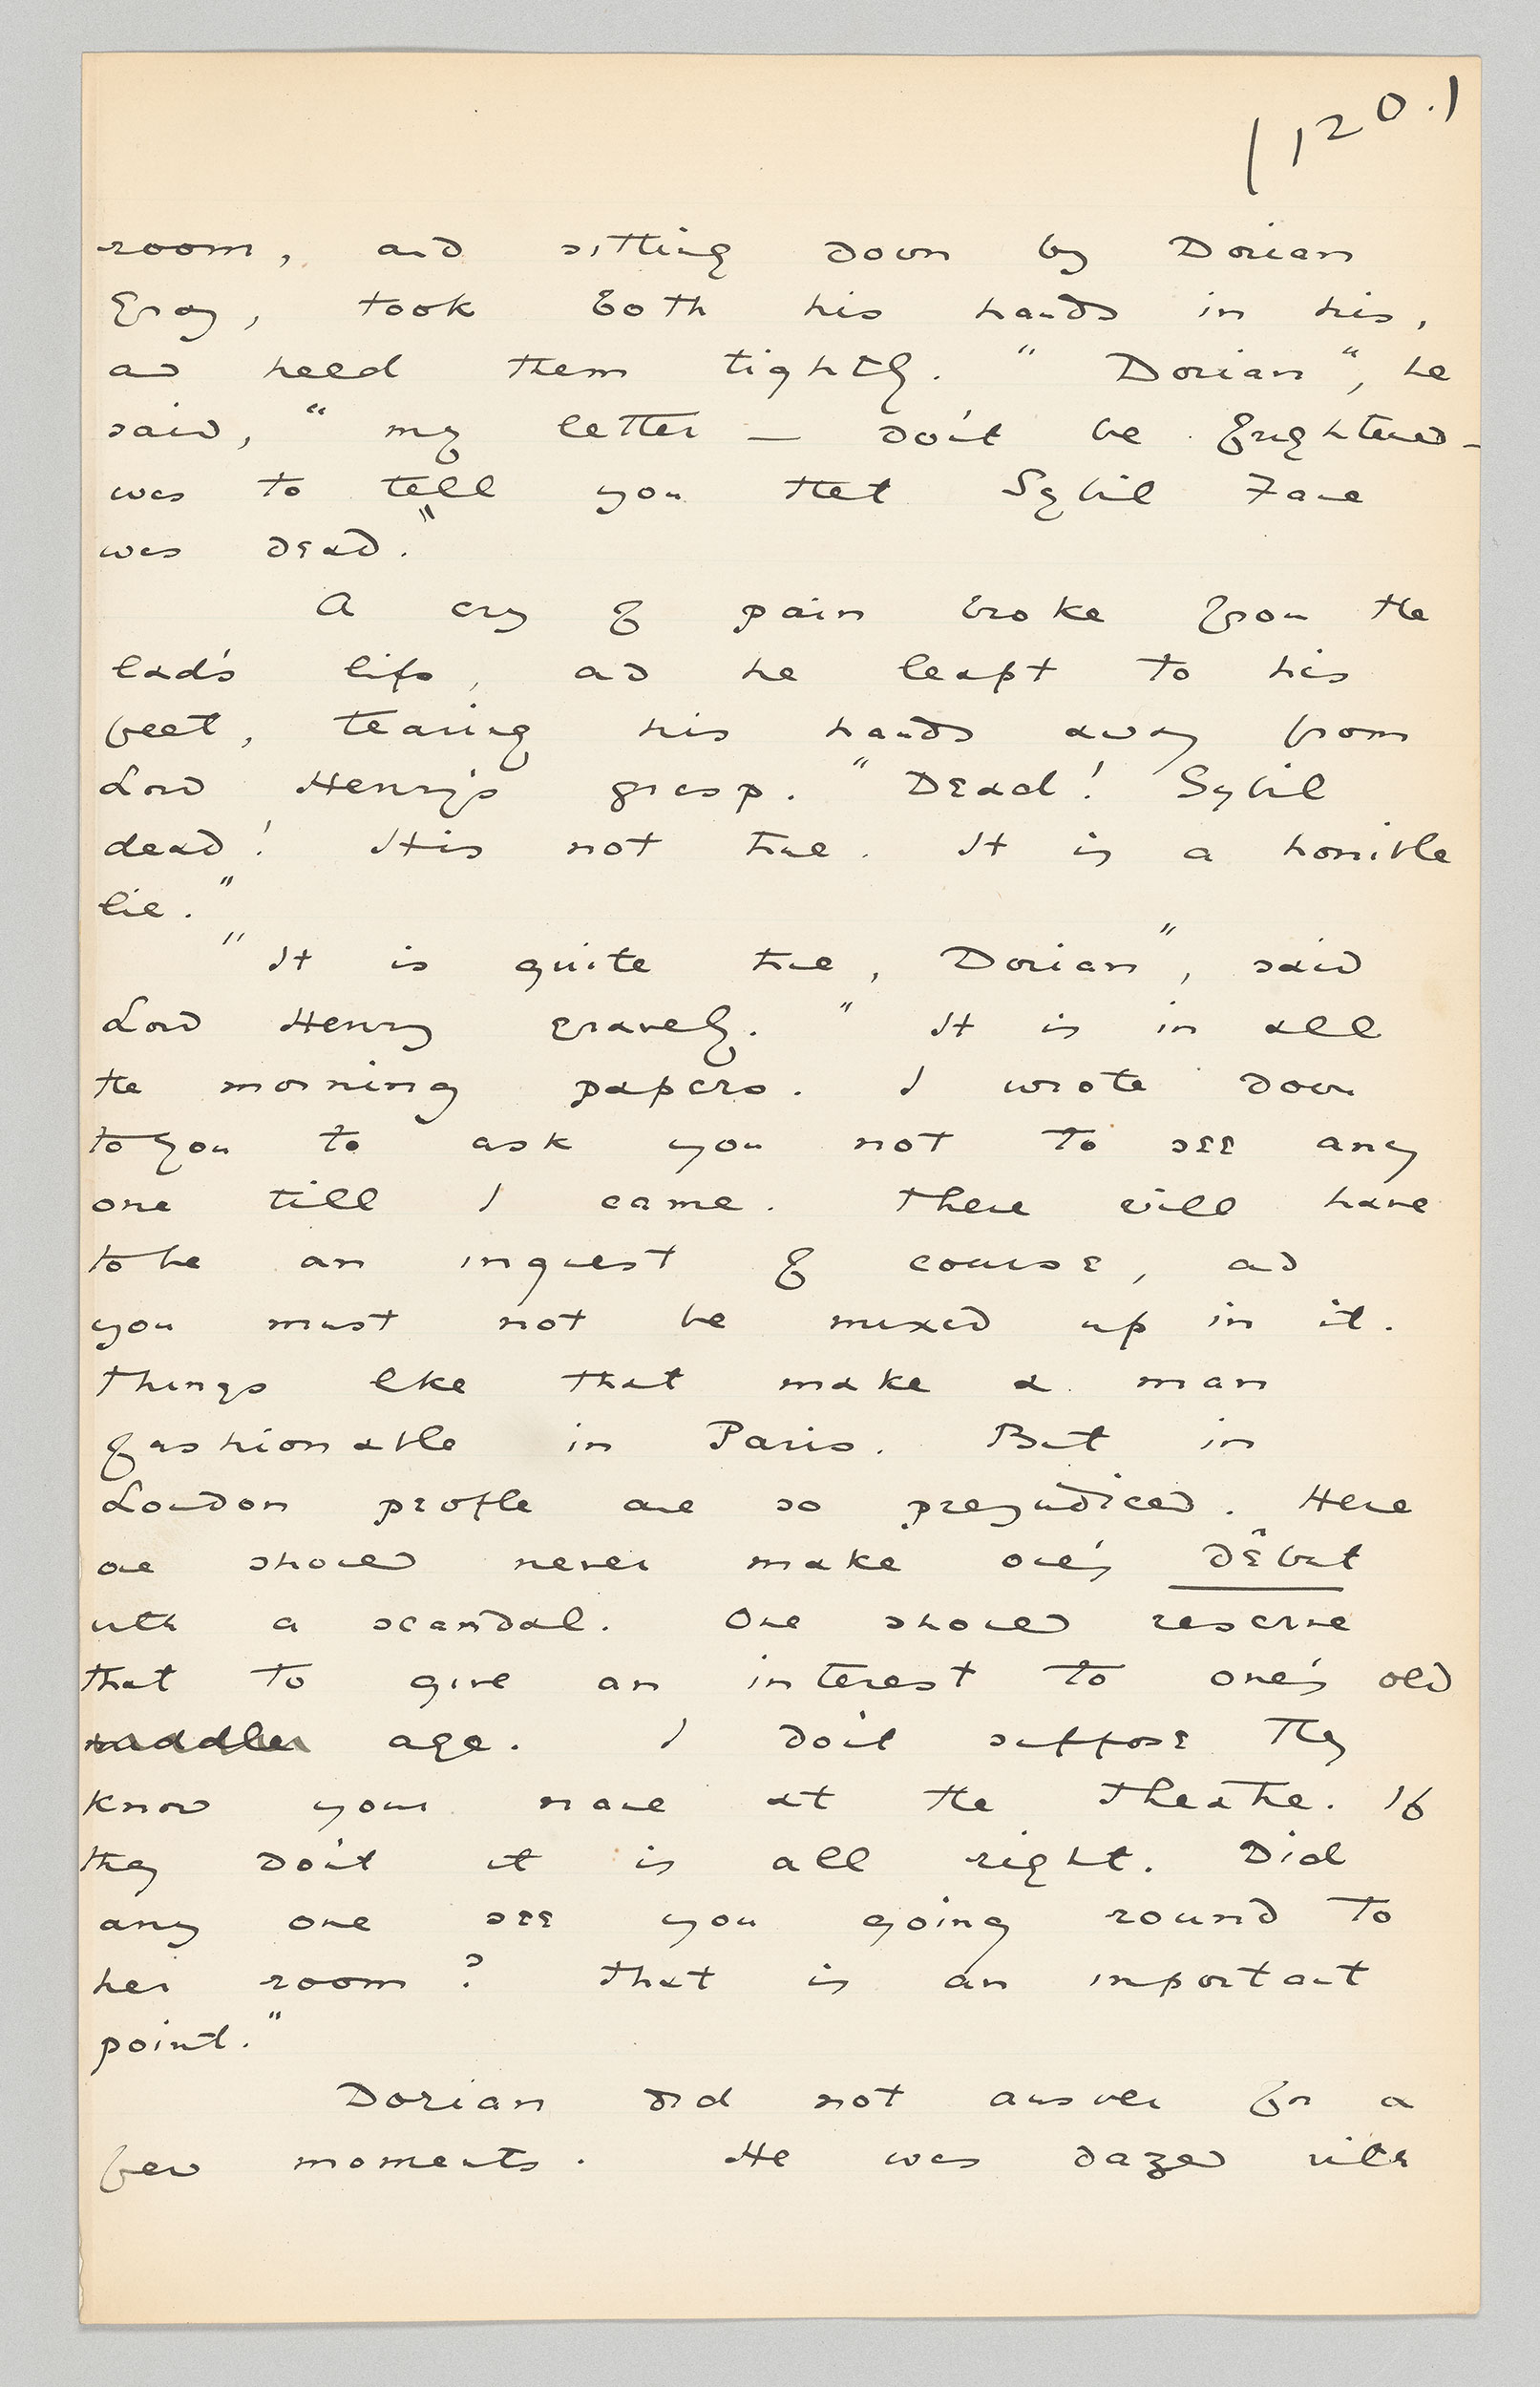 (120.)
room, and sitting down by Dorian
Gray, took both his hands in his,
and held them tightly. "Dorian", he
said, "my letter — don't be frightened —
was to tell you that Sybil Vane
was dead."
A cry of pain broke from the
lad's lips, and he leapt to his
feet, tearing his hands away from
Lord Henry's grasp. "Dead! Sybil
dead! It is not true. It is a horrible
lie."
"It is quite true, Dorian", said
Lord Henry gravely. "It is in all
the morning papers. I wrote down
to you to ask you not to see any
one till I came. There will have
to be an inquest of course, and
you must not be mixed up in it.
Things like that make a man
fashionable in Paris. But in
London people are so prejudiced. Here
one should never make one's dêbut
with a scandal. One should reserve
that to give an interest to one's old
middle age. I don't suppose they
know your name at the theatre. If
they don't it is all right. Did
any one see you going round to
her room? That is an important
point."
Dorian did not answer for a
few moments. He was dazed with